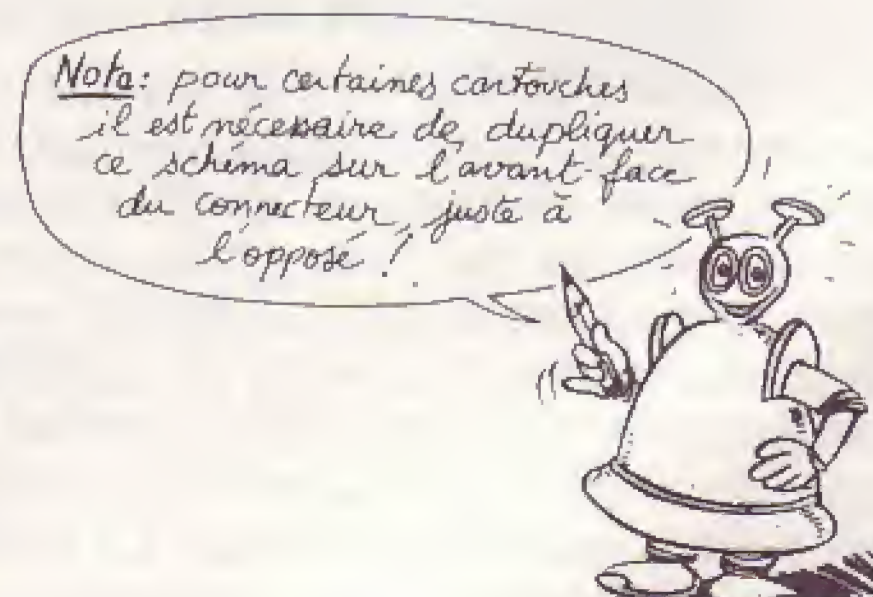 Nota: pour certaines cartouches
il est nécessaire de dupliquer
ce schéma sur l'avant-face
du connecteur, juste à
l'opposé !